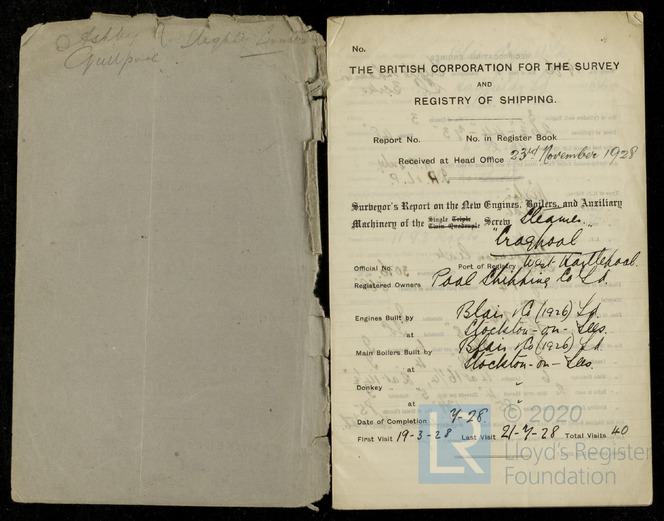 Ashby
Gullpool
No.
THE BRITISH CORPORATION FOR THE SURVEY
AND
REGISTRY OF SHIPPING.
Report No. No. in Register Book
Received at Head Office 23rd November 1928
Surveyor's Report on the New Engines, Boilers, and Auxiliary
Machinery of the Single Triple Twin Quadruple Screw Steamer
"Cragpool"
Official No. Port of Registry West Hartlepool.
Registered Owners Pool Shipping Co Ld.
Engines Built by Blair & Co (1926) Ld.
at Stockton-on-Tees.
Main Boilers Built by Blair & Co (1926) Ld
at Stockton-on-Tees.
Donkey "
at "
Date of Completion 7-28.
First Visit 19-3-28 Last Visit 21-7-28 Total Visits 40
LR © 2020
Lloyd's Register
Foundation